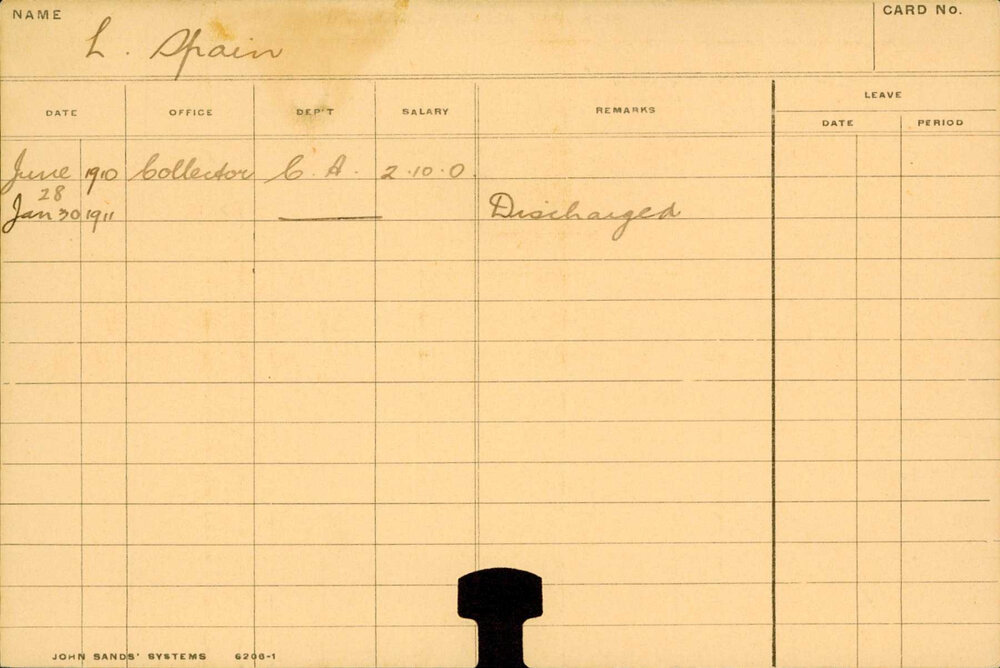 NAME
L. Spain
CARD No.
DATE OFFICE DEP'T SALARY REMARKS LEAVE
DATE PERIOD
June 1910 Collector C. A. 2.10.0.
28
Jan 30 1911 Discharged
JOHN SANDS' SYSTEMS 6206-1